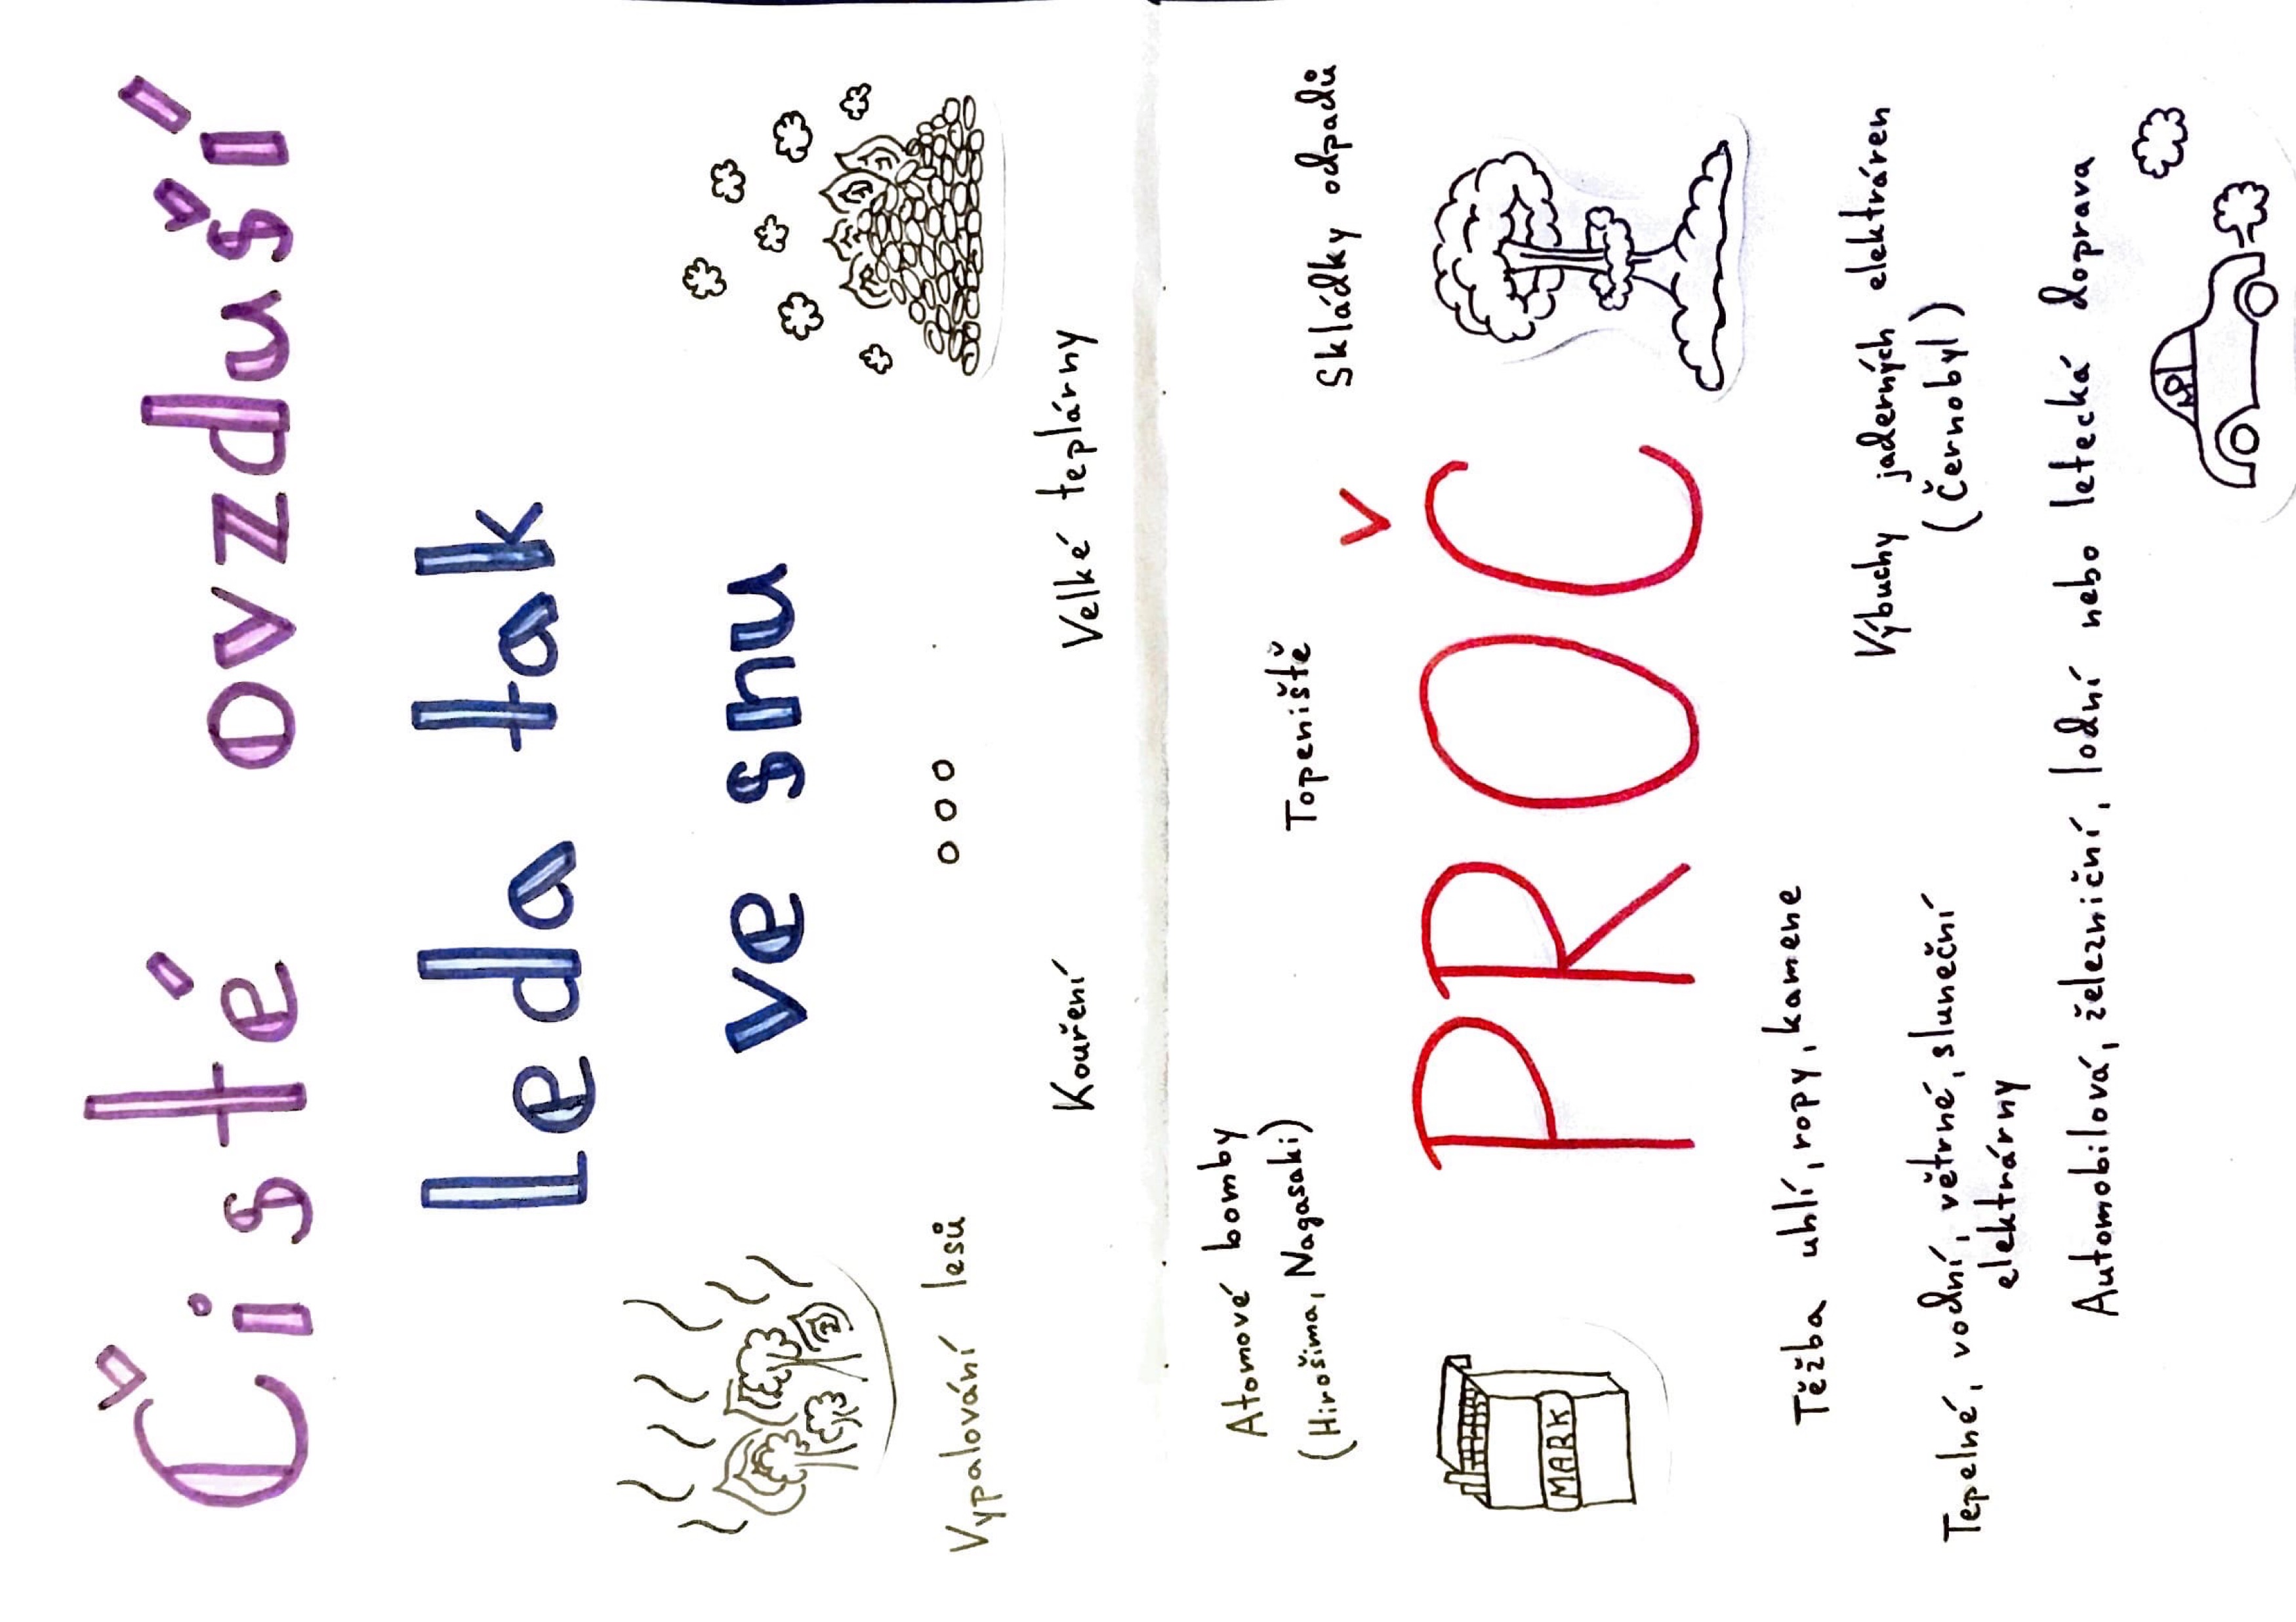 Čisté ovzduší
Leda tak
ve snu
ooo
Vypalování lesů
Kouření
Velké teplárny
Atomové bomby
(Hirošima, Nagasaki)
Topeniště
Skládky odpadů
PROČ
MARK
Těžba uhlí, ropy, kamene
Výbuchy jaderných elektráren
(Černobyl)
Tepelné, vodní, větrné, sluneční
elektrárny
Automobilová, železniční, lodní nebo letecká doprava